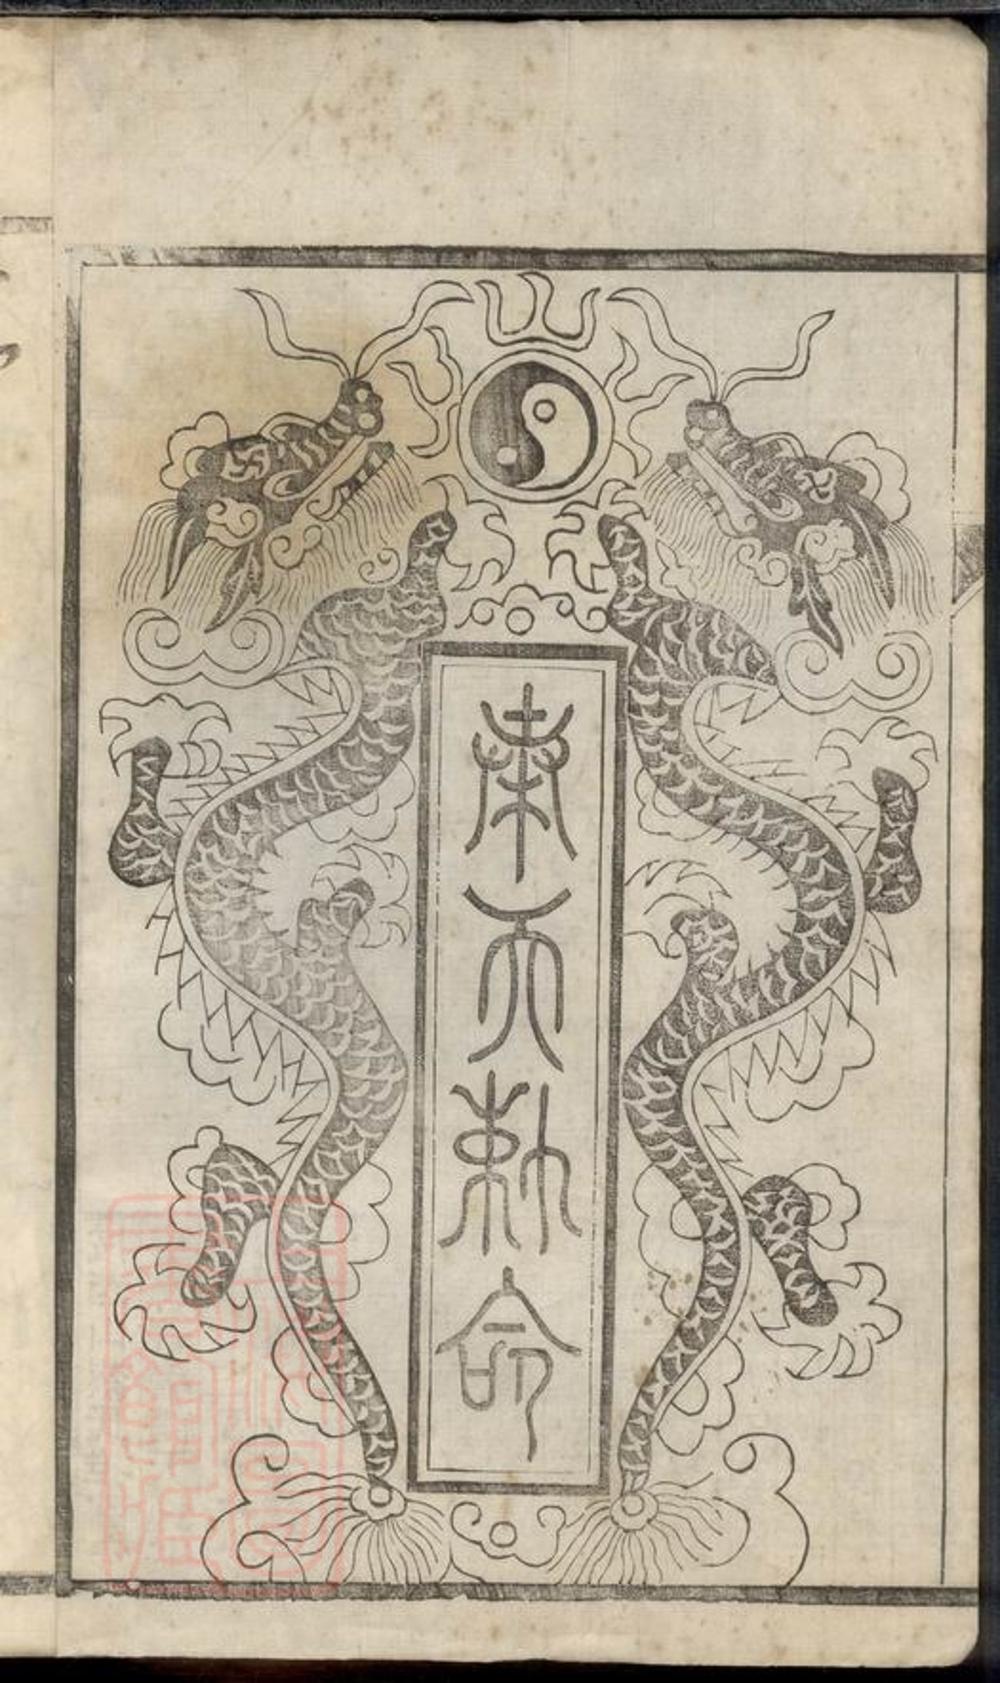 奉天勅命